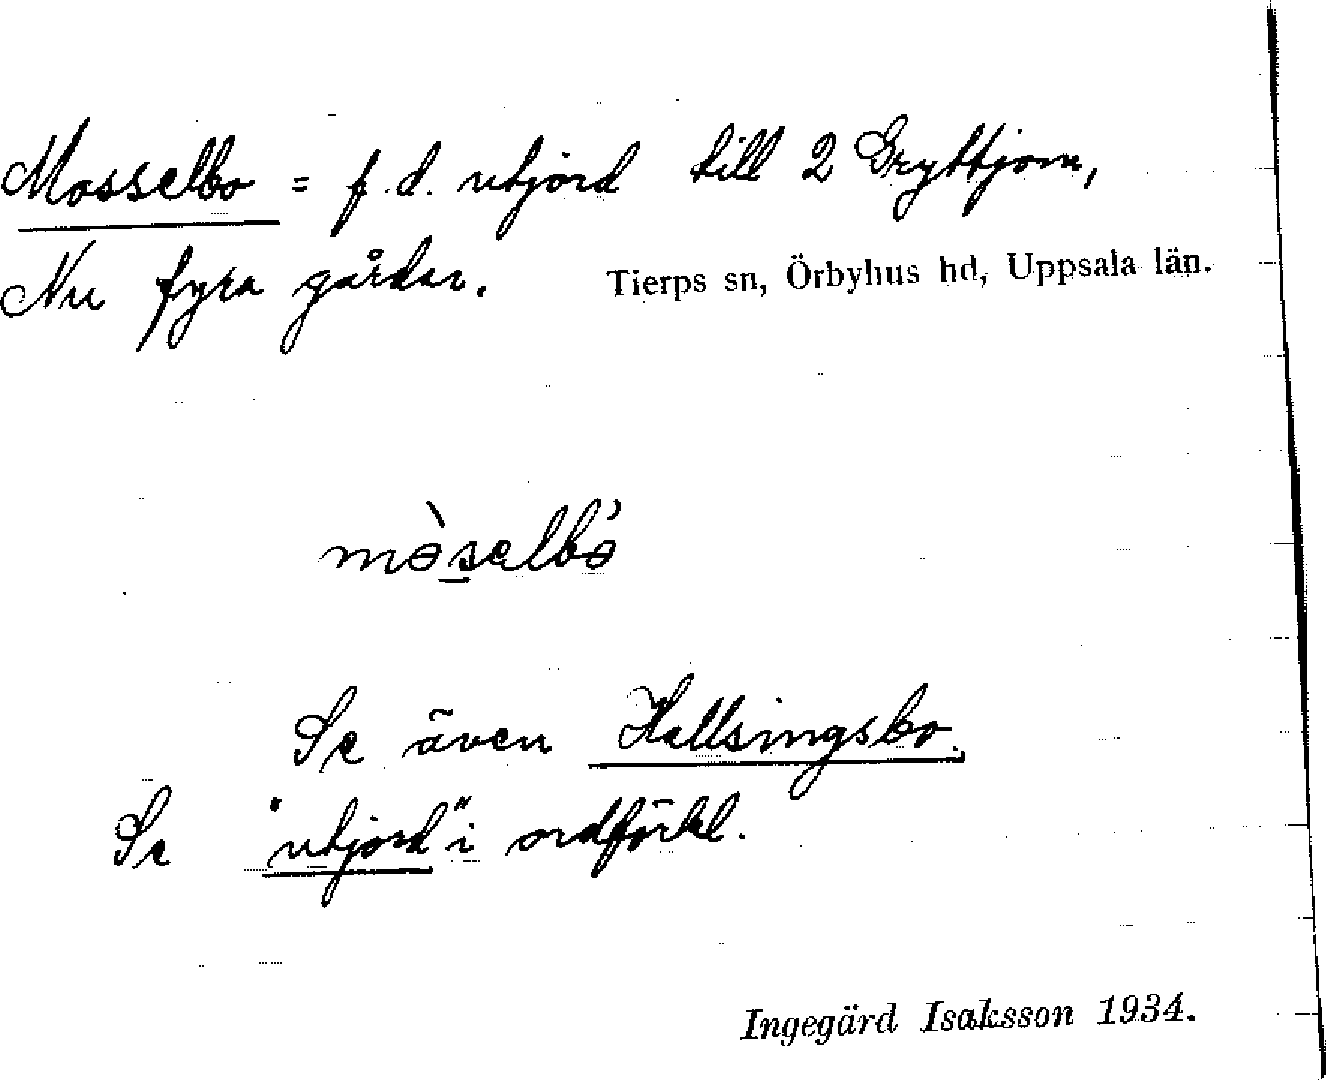 Mosselbo = f.d. utjord till 2 Gryttjom,
Nu fyra gårdar. Tierps sn, Örbyhus hd, Uppsala län.
mə̀selbə́
Se även Hällsingsbo.
Se "utjord" i ordförkl.
Ingegärd Isaksson 1934.